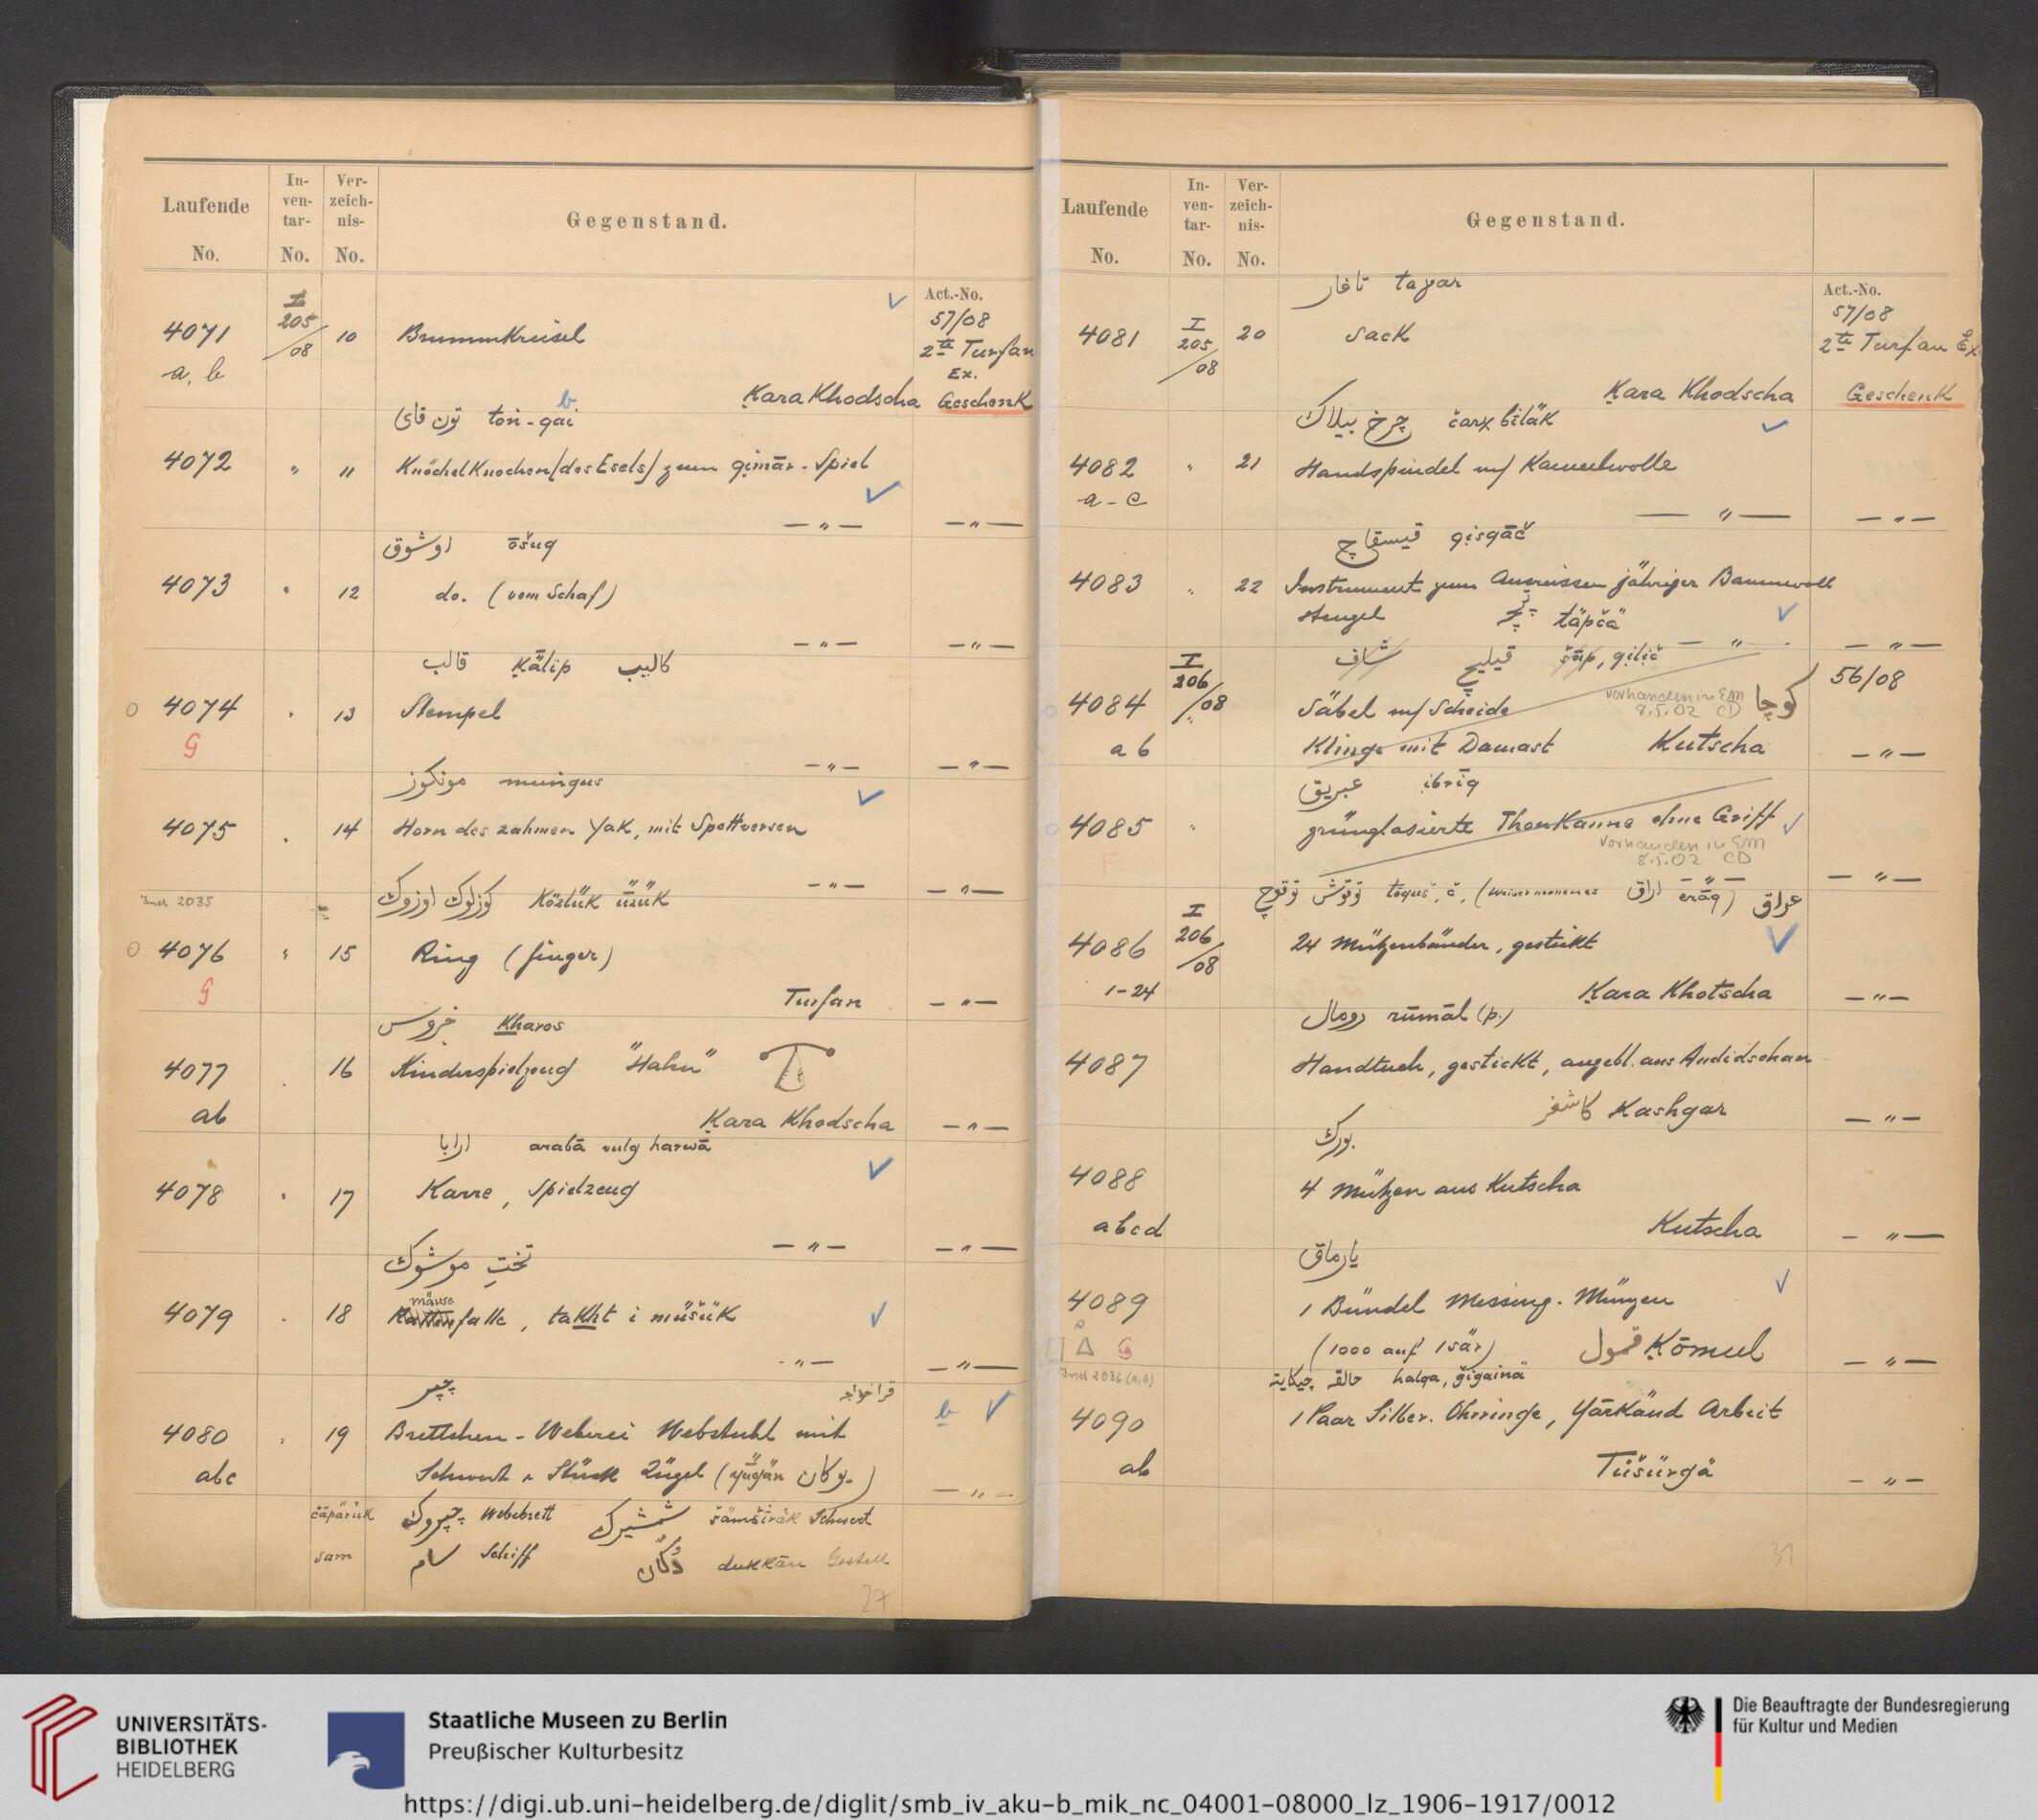 Laufende No.
In-ven-tar-No.
Ver-zeich-nis-No.
Gegenstand.
Act.-No.
4071 a, b
I 205/08
10
Brummkreisel
57/08
2te Turfan Ex.
Kara Khodscha
Geschenk
تون قای toṅ-qai b
4072 " 11 Knöchelknochen (des Esels) zum qimār-Spiel
— " — — " —
اوشوق ōšuq
4073 " 12 do. (vom Schaf)
— " — — " —
قالب Kālip كاليب
4074 " 13 Stempel
G
— " — — " —
مونكوز muṅgus
4075 " 14 Horn des zahmen Yak, mit Spottversen
— " — — " —
كوزلوك اوزوك Közlük üzük
4076 " 15 Ring (finger)
G
Turfan — " —
خروس Kharos
4077 " 16 Kinderspielzeug "Hahn"
ab
Kara Khodscha — " —
ارابا arabā vulg harwā
4078 " 17 Karre, Spielzeug
— " — — " —
تخت موشوك
mäuse
4079 " 18 falle, takht i müšük
— " — — " —
قراخواجه
b
4080 " 19 Brettchen-Weberei Webstuhl mit
abc
Schwert & Stück Zügel (yügän يوكان)
— " —
čäpärük چپروك Webebrett شمشيرك šämširäk Schwert
sam سام Schiff دُكّان dukkān Gestell
27
Laufende No.
In-ven-tar-No.
Ver-zeich-nis-No.
Gegenstand.
Act.-No.
تاغار taγar
4081 I 205/08 20 Sack
57/08
2te Turfan Ex
Kara Khodscha
Geschenk
چرخ بيلاك čarx biläk
4082 " 21 Handspindel m/ Kamelwolle
a-c
— " — — " —
قيسقاچ qisqāč
4083 " 22 Instrument zum Ausreissen jähriger Baumwoll
stengel täpčä
— " — — " —
شاف قيليچ šāp, qilič
4084 I 206/08 Säbel m/ Scheide
vorhanden in EM
8.5.02 CD
كوچا
56/08
ab
Klinge mit Damast Kutscha — " —
عبريق ibrīq
4085 " grünglasierte Thonkanne ohne Griff
F
vorhanden in EM
8.5.02 CD
— " — — " —
توقوش توقوچ toquš, č, ( اراق erāq) عراق
4086 I 206/08 24 Mützenbänder, gestickt
1-24
Kara Khotscha — " —
رومال rūmāl (p.)
4087 Handtuch, gestickt, angebl. aus Andidschan
كاشغر Kashgar — " —
بورك
4088 4 Mützen aus Kutscha
abcd
Kutscha — " —
يارماق
4089 1 Bündel Messing-Münzen
Δ G
(1000 auf 1 sär) قمول Kōmul — " —
حالقه halqa, gigainä
4090 1 Paar Silber. Ohrringe, Yārkänd Arbeit
ab
Tüšürgä — " —
31
UNIVERSITÄTS-
BIBLIOTHEK
HEIDELBERG
Staatliche Museen zu Berlin
Preußischer Kulturbesitz
Die Beauftragte der Bundesregierung
für Kultur und Medien
https://digi.ub.uni-heidelberg.de/diglit/smb_iv_aku-b_mik_nc_04001-08000_lz_1906-1917/0012